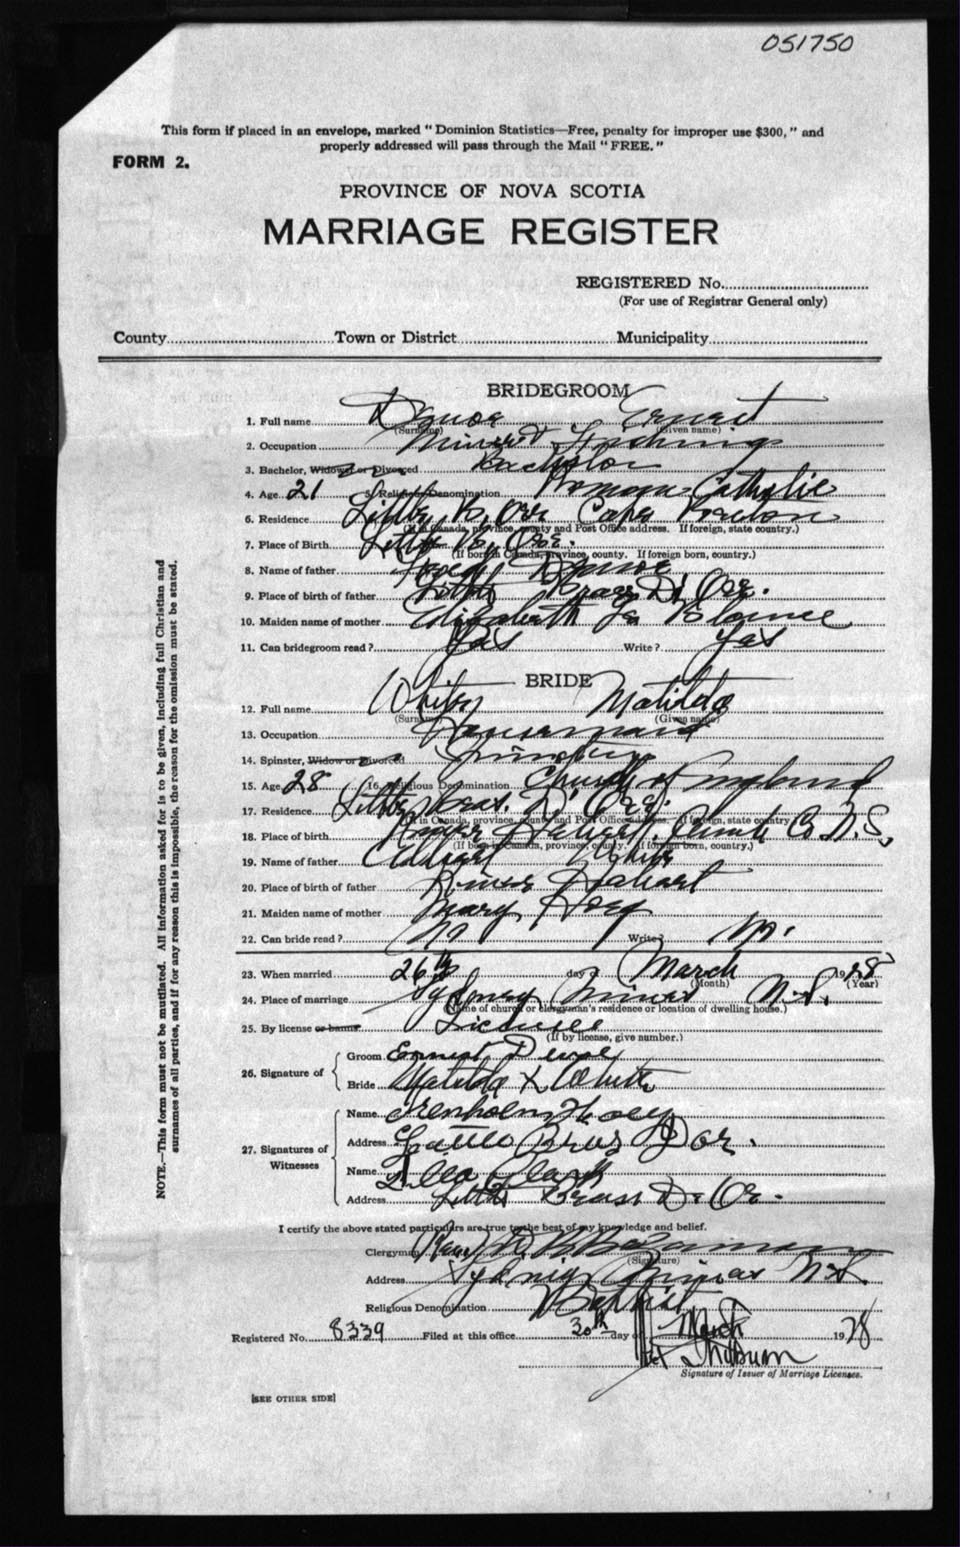 051750
This form if placed in an envelope, marked "Dominion Statistics—Free, penalty for improper use $300," and
properly addressed will pass through the Mail "FREE."
FORM 2.
PROVINCE OF NOVA SCOTIA
MARRIAGE REGISTER
REGISTERED No.
(For use of Registrar General only)
County Town or District Municipality
BRIDEGROOM
1. Full name Ernest
(Surname) (Given name)
2. Occupation Miner & Fishing
3. Bachelor, Widower or Divorced Bachelor
4. Age 21 5. Religious Denomination Roman Catholic
6. Residence Little B, Orr Cape Breton
(If in Canada, province, county and Post Office address. If foreign, state country.)
7. Place of Birth Little B, Orr.
(If born in Canada, province, county. If foreign born, country.)
8. Name of father
9. Place of birth of father Little Bras D' Or.
10. Maiden name of mother Elizabeth
11. Can bridegroom read? Yas Write? Yas
BRIDE
12. Full name Matilda
(Surname) (Given name)
13. Occupation
14. Spinster, Widow or Divorced Spinster
15. Age 28 16. Religious Denomination Church of England
17. Residence Little Bras. D' Orr.
(If in Canada, province, county and Post Office address. If foreign, state country.)
18. Place of birth Co N.S,
(If born in Canada, province, county. If foreign born, country.)
19. Name of father
20. Place of birth of father River Hebert
21. Maiden name of mother Mary
22. Can bride read? No Write? No.
23. When married 26th day of March 1928
(Month) (Year)
24. Place of marriage Sydney Mines N.S.
(Name of church or clergyman's residence or location of dwelling house.)
25. By license or banns License
(If by license, give number.)
26. Signature of
Groom Ernest
Bride Matilda X White
27. Signatures of
Witnesses
Name Trenholm
Address Little Bras Dor.
Name Clark
Address Little Brass D. Or.
I certify the above stated particulars are true to the best of my knowledge and belief.
Clergyman Rev.
(Signature)
Address Sydney Mines N.S.
Religious Denomination Baptist
Registered No. 8339 Filed at this office 30th day of March 1928
Signature of Issuer of Marriage Licenses.
[SEE OTHER SIDE]
NOTE.—This form must not be mutilated. All information asked for is to be given, including full Christian and
surnames of all parties, and if for any reason this is impossible, the reason for the omission must be stated.